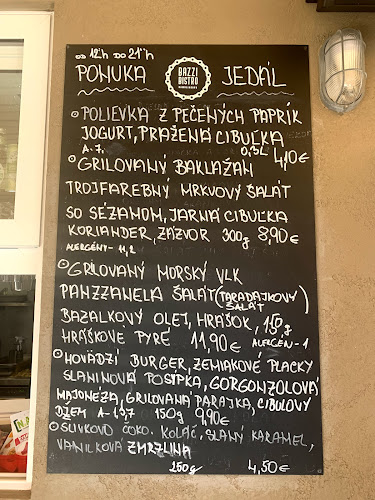 OD 12°°h DO 21°°h
PONUKA JEDÁL
BAZZI
BISTRO
POLIEVKA Z PEČENÝCH PAPRÍK
JOGURT, PRAŽENÁ CIBUĽKA
A-7. 0,3L 4,10€
GRILOVANÝ BAKLAŽÁN
TROJFAREBNÝ MRKVOVÝ ŠALÁT
SO SÉZAMOM, JARNÁ CIBUĽKA
KORIANDER, ZÁZVOR 300g 8,90€
ALERGÉNY - 11,2
GRILOVANÝ MORSKÝ VLK
PANZZANELA ŠALÁT (PARADAJKOVÝ ŠALÁT)
BAZALKOVÝ OLEJ, HRÁŠOK, 150g
HRÁŠKOVÉ PYRÉ 11,90€ ALERGÉN - 1
HOVÄDZÍ BURGER, ZEMIAKOVÉ PLACKY
SLANINOVÁ POSÝPKA, GORGONZOLOVÁ
MAJONÉZA, GRILOVANÁ PARAJKA, CIBUĽOVÝ
DŽEM A-1,3,7 150g 9,90€
SLIVKOVO ČOKO. KOLÁČ, SLANÝ KARAMEL,
VANILKOVÁ ZMRZLINA
250g 4,50€